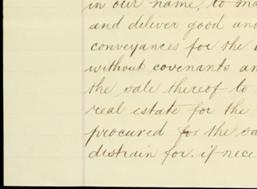 in our name, to ma
and deliver good and
conveyances for the
without covenants an
the sale thereof to
real estate for the
procured for the sa
distrain for, if nece